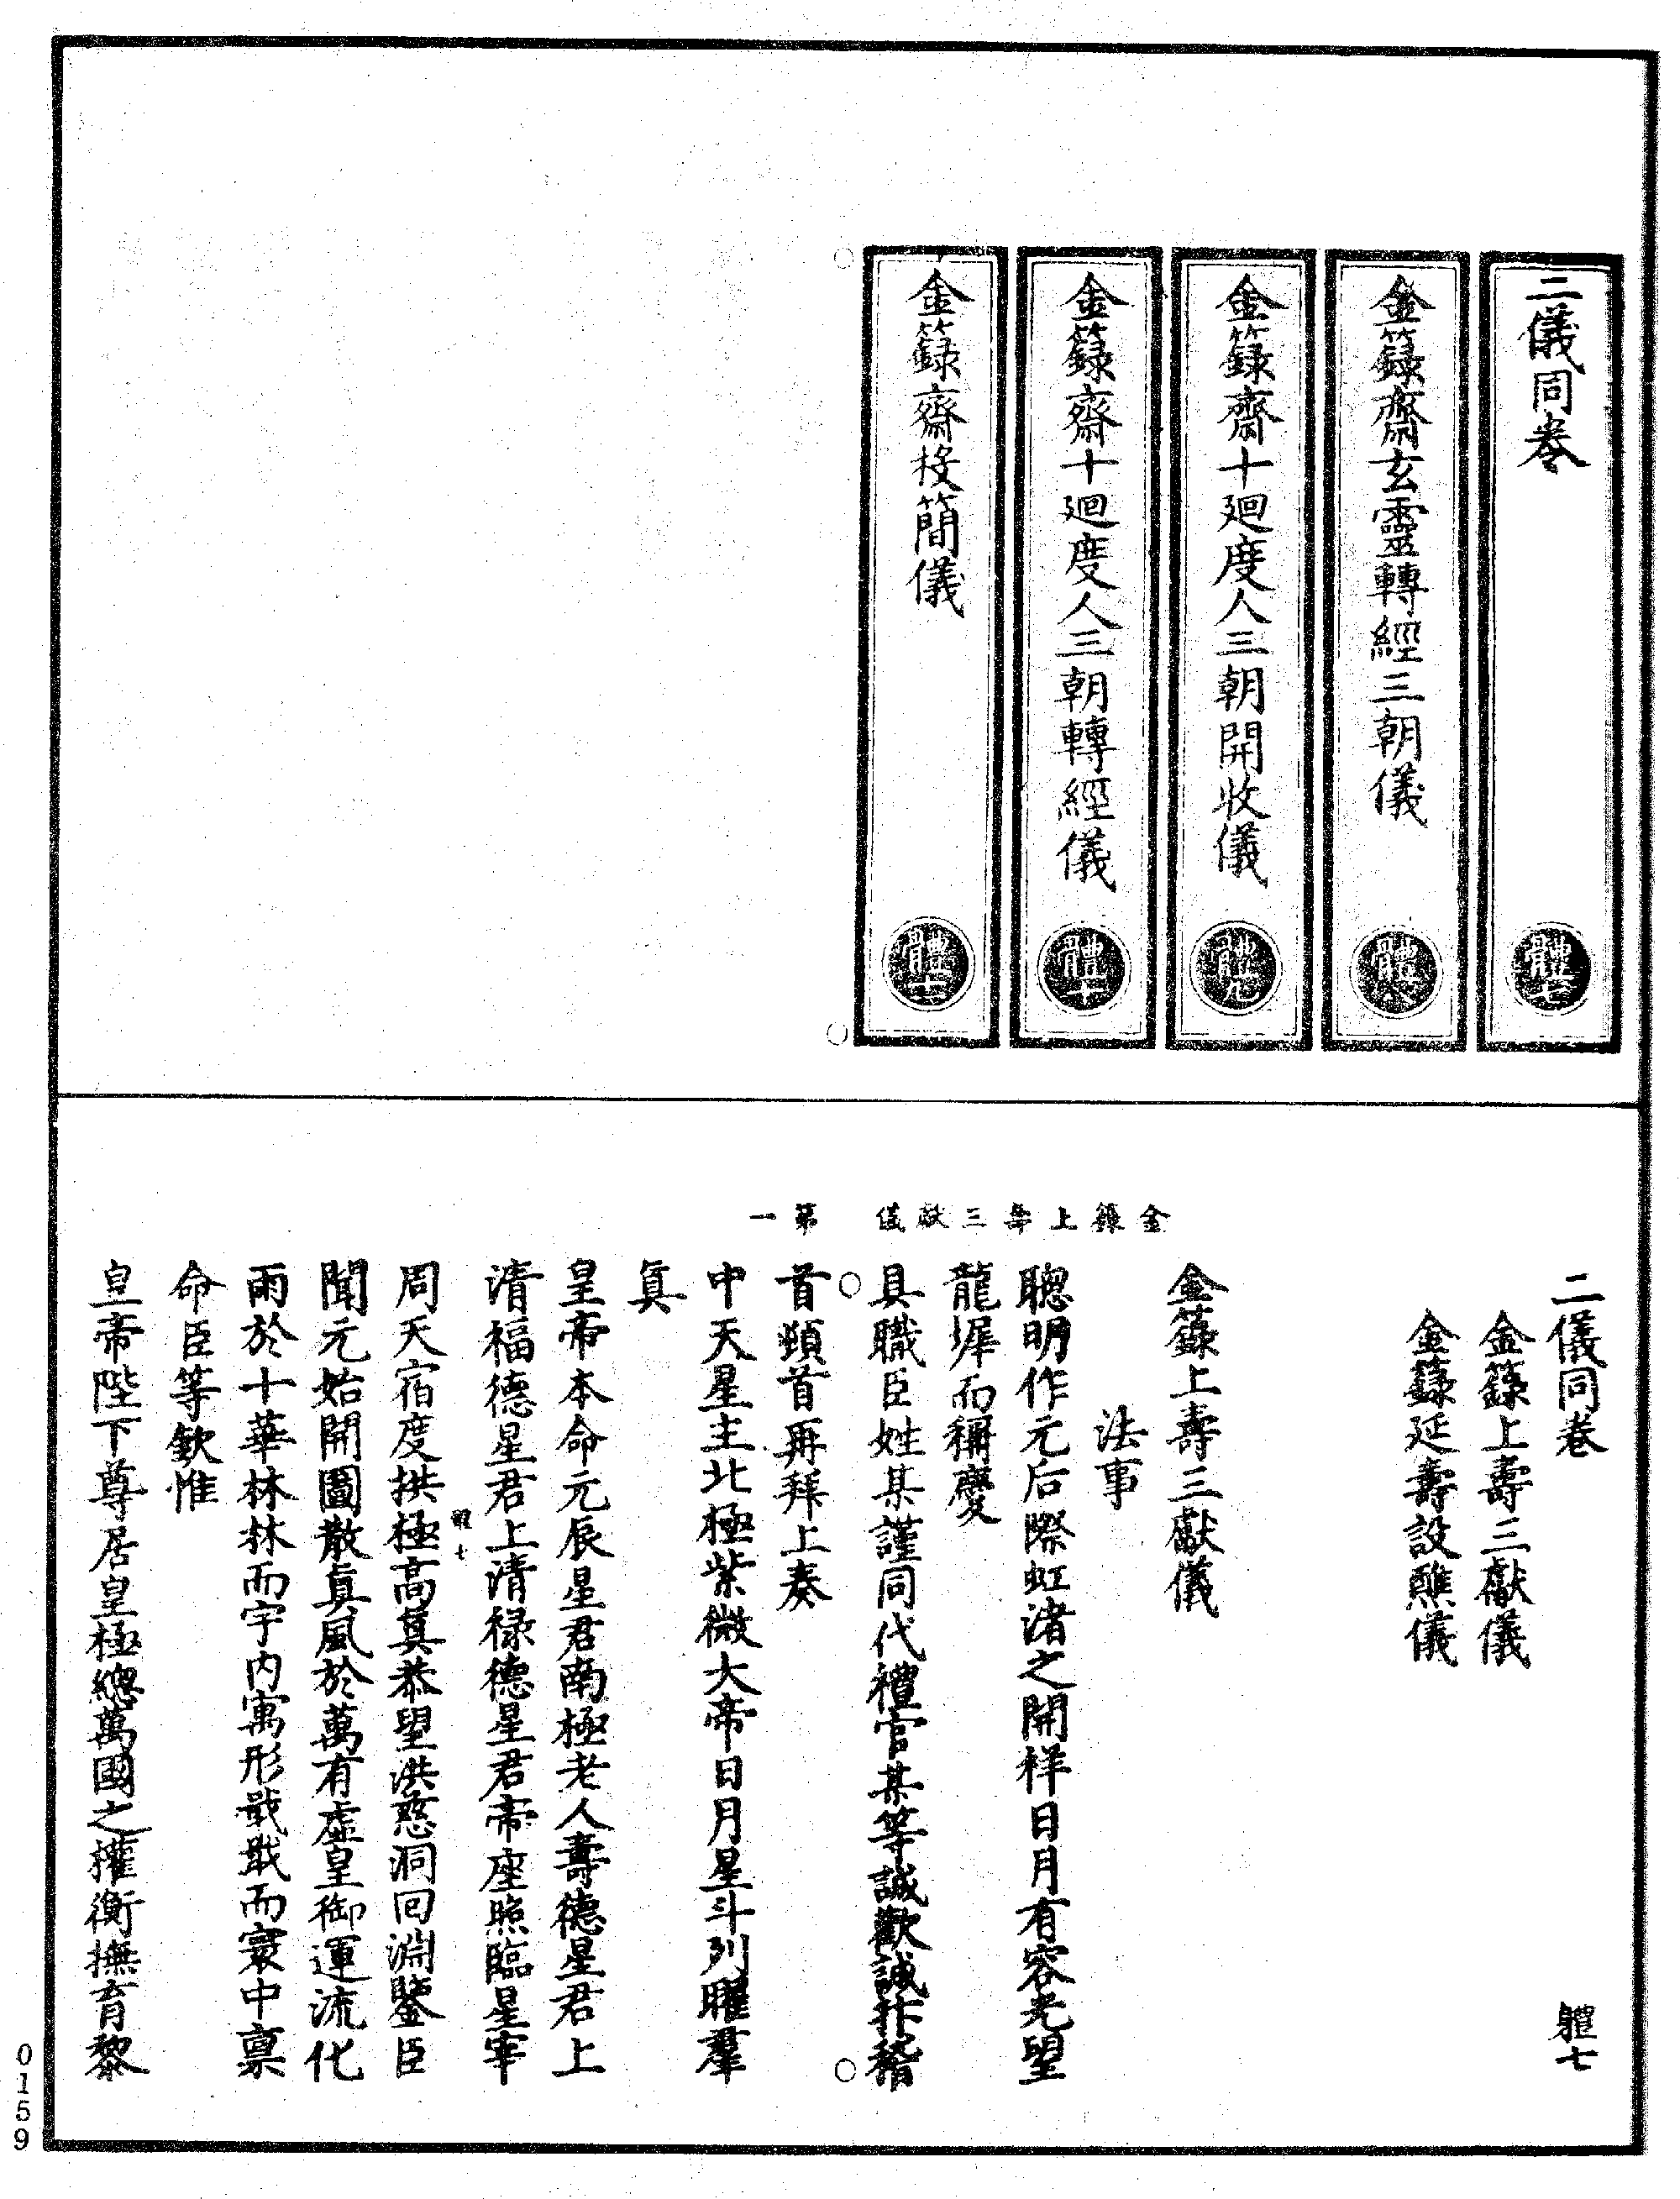 二儀同卷
體七
金籙齋玄靈轉經三朝儀
體八
金籙齋十廻度人三朝開收儀
體九
金籙齋十廻度人三朝轉經儀
體十
金籙齋投簡儀
體十一
二儀同卷 體七
金籙上壽三獻儀
金籙延壽設醮儀
金籙上壽三獻儀 第一
金籙上壽三獻儀
法事
聰明作元后際虹渚之開祥日月有容光望
龍墀而稱慶
具職臣姓某謹同代禮官某等誠歡誠抃稽
首頓首再拜上奏
中天星主北極紫微大帝日月星斗列曜羣
真
皇帝本命元辰星君南極老人壽德星君上
清福德星君上清祿德星君帝座照臨星宰
體七
周天宿度拱極高真恭望洪慈洞回淵鑒臣
聞元始開圖散真風於萬有虛皇御運流化
雨於十華林林而宇內寓形戢戢而寰中稟
命臣等欽惟
皇帝陛下尊居皇極總萬國之權衡撫育黎
0159